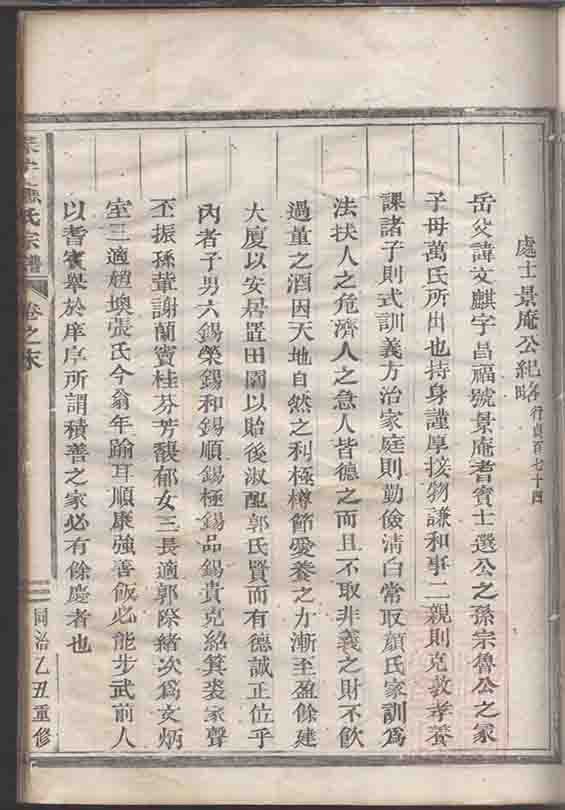 處士景庵公紀略行貞百七十四
岳父諱文麒字昌福號景庵耆賓士選公之孫宗魯公之冢
子母萬氏所出也持身謹厚接物謙和事二親則克敦孝養
課諸子則式訓義方治家庭則勤儉清白常取顏氏家訓為
法扶人之危濟人之急人皆德之而且不取非義之財不飲
過量之酒因天地自然之利極樽節愛養之力漸至盈餘建
大廈以安居置田園以貽後淑配郭氏賢而有德誠正位乎
內者子男六錫榮錫和錫順錫極錫品錫貴克紹箕裘家聲
丕振孫輩謝蘭竇桂芬芳馥郁女三長適郭際緒次為文炳
室三適趙墺張氏今翁年踰耳順康強善飯必能步武前人
以耆賓舉於庠序所謂積善之家必有餘慶者也
氏宗譜
卷之末
同治乙丑重修